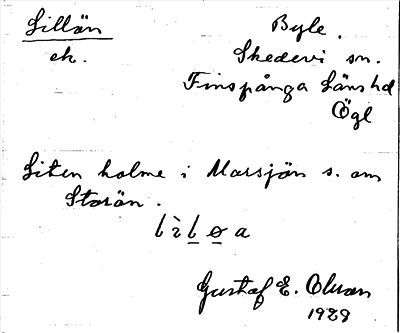 Lillön
ek.
Byle.
Skedevi sn.
Finspånga Länshd
Ögl
Liten holme i Marsjön s. om
Storön.
Gustaf E. Olsson
1929